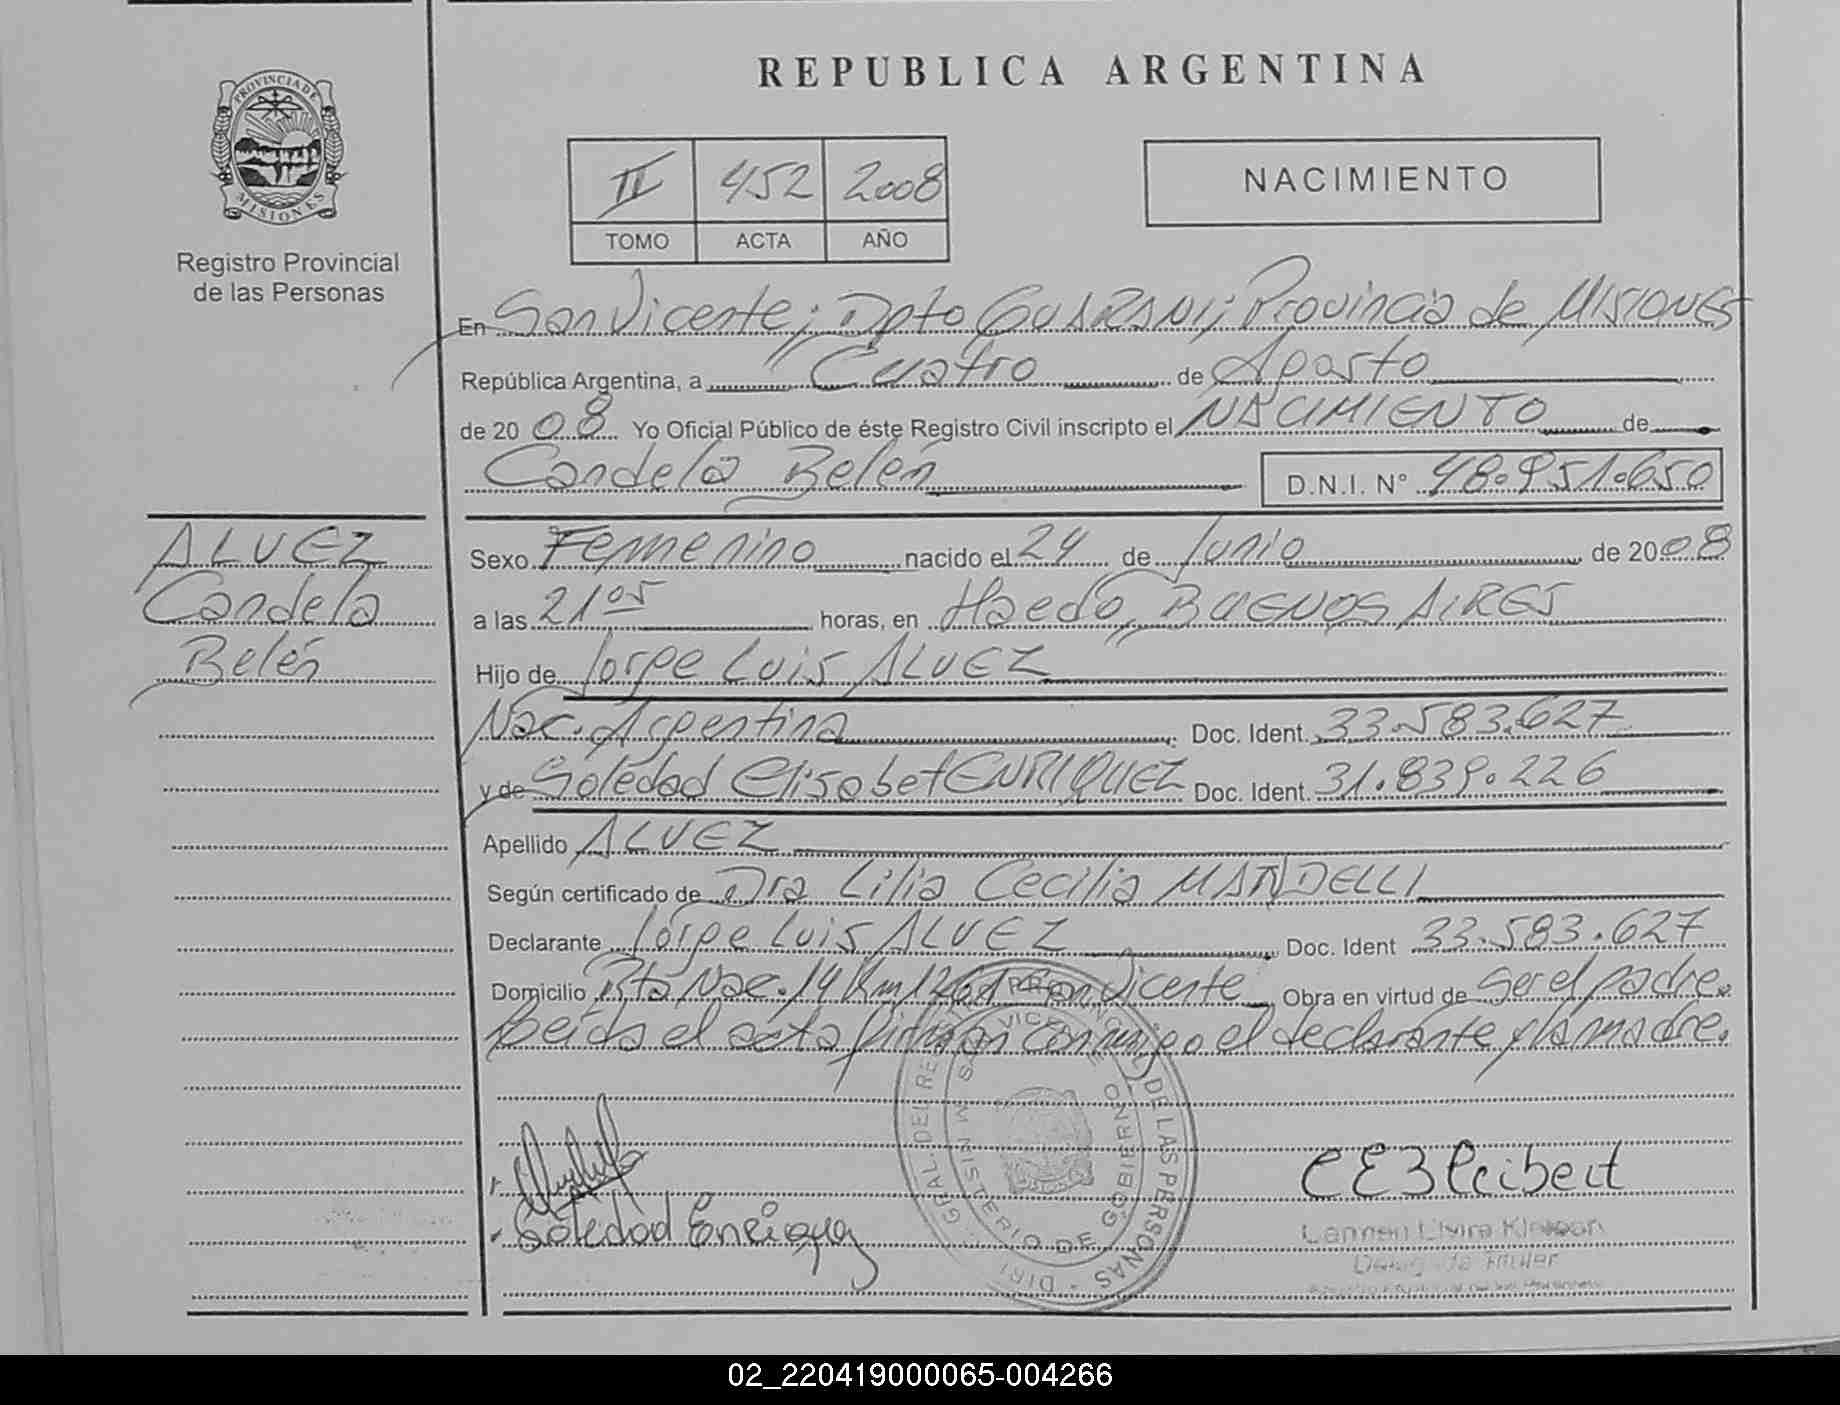 REPUBLICA ARGENTINA
PROVINCIA DE
MISIONES
Registro Provincial
de las Personas
II 452 2008
TOMO ACTA AÑO
NACIMIENTO
En San Vicente; Dpto GUARANI; Provincia de MISIONES
República Argentina, a Cuatro de Agosto
de 2008 Yo Oficial Público de éste Registro Civil inscripto el NACIMIENTO de
Candela Belén D.N.I. Nº 48.951.650
ALVEZ
Candela
Belén
Sexo Femenino nacido el 24 de Junio de 2008
a las 21 05 horas, en Haedo, BUENOS AIRES
Hijo de Jorge Luis ALVEZ
Nac. Argentina Doc. Ident. 33.583.627
y de Soledad Elisabet ENRIQUEZ Doc. Ident. 31.839.226
Apellido ALVEZ
Según certificado de Dra Lilia Cecilia MANDELLI
Declarante Jorge Luis ALVEZ Doc. Ident 33.583.627
Domicilio Rta Nac. 14 Km San Vicente Obra en virtud de Ser el padre.
Leída el acta firman conmigo el declarante y la madre.
DE LAS PERSONAS
MINISTERIO DE GOBIERNO
Soledad Enriquez
02_220419000065-004266